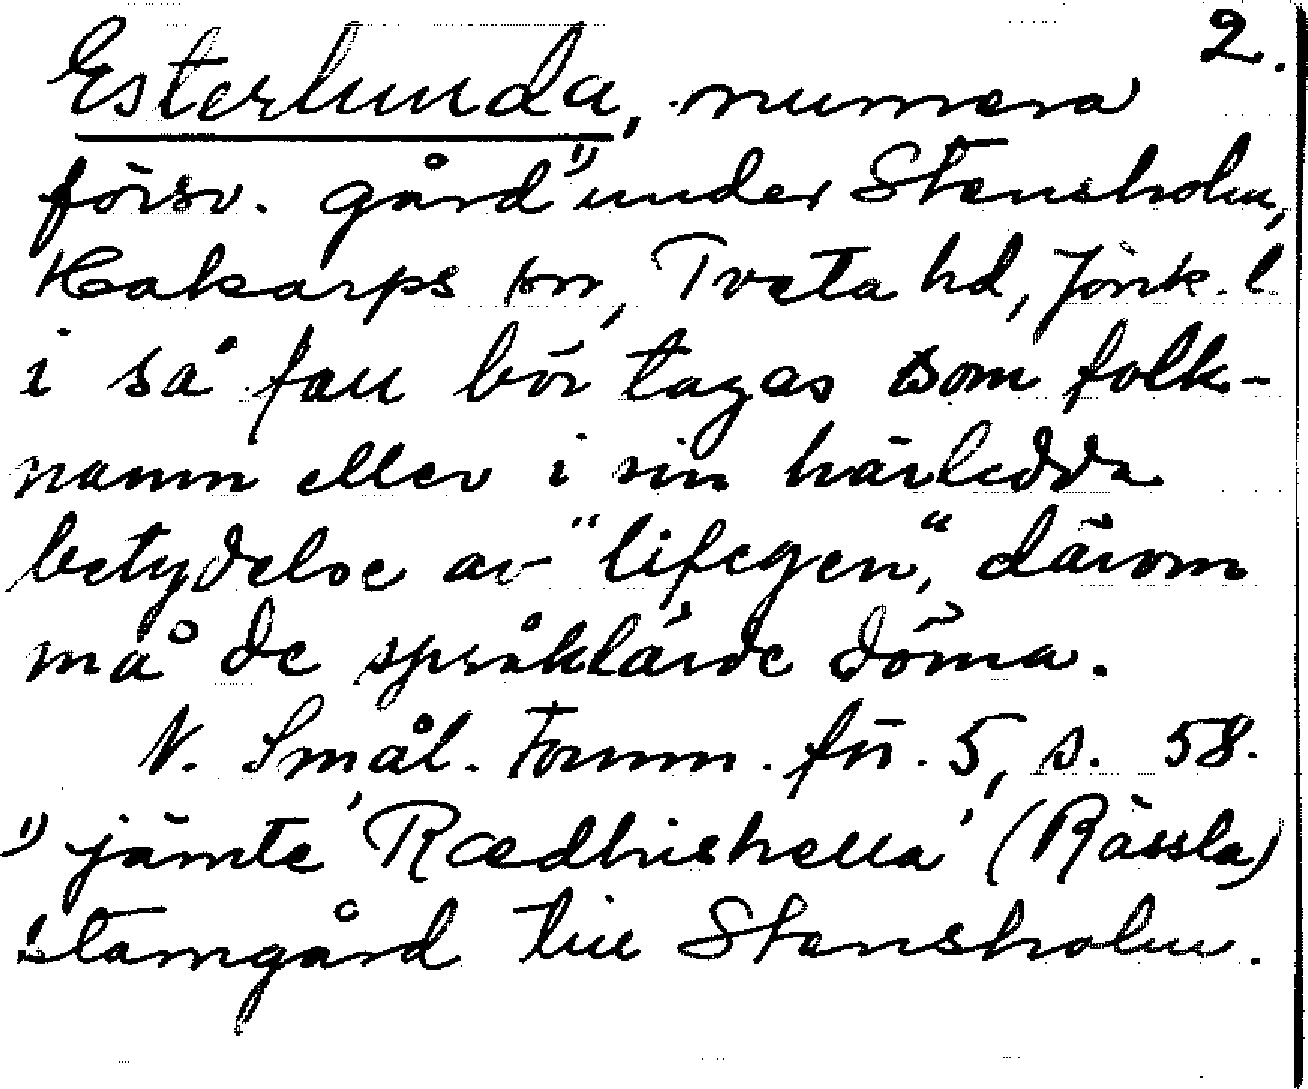 2.
Esterlunda, numera
försv. gård ¹⁾ under Stensholm,
Hakarps sn, Tveta hd, Jönk. l
i så fall bör tagas som folk-
namn eller i sin härledda
betydelse av "lifegen", därom
må de språklärde döma.
N. Smål. Fornm. för. 5, s. 58.
¹⁾ jämte 'Rædhishella' (Rässla)
stamgård till Stensholm.